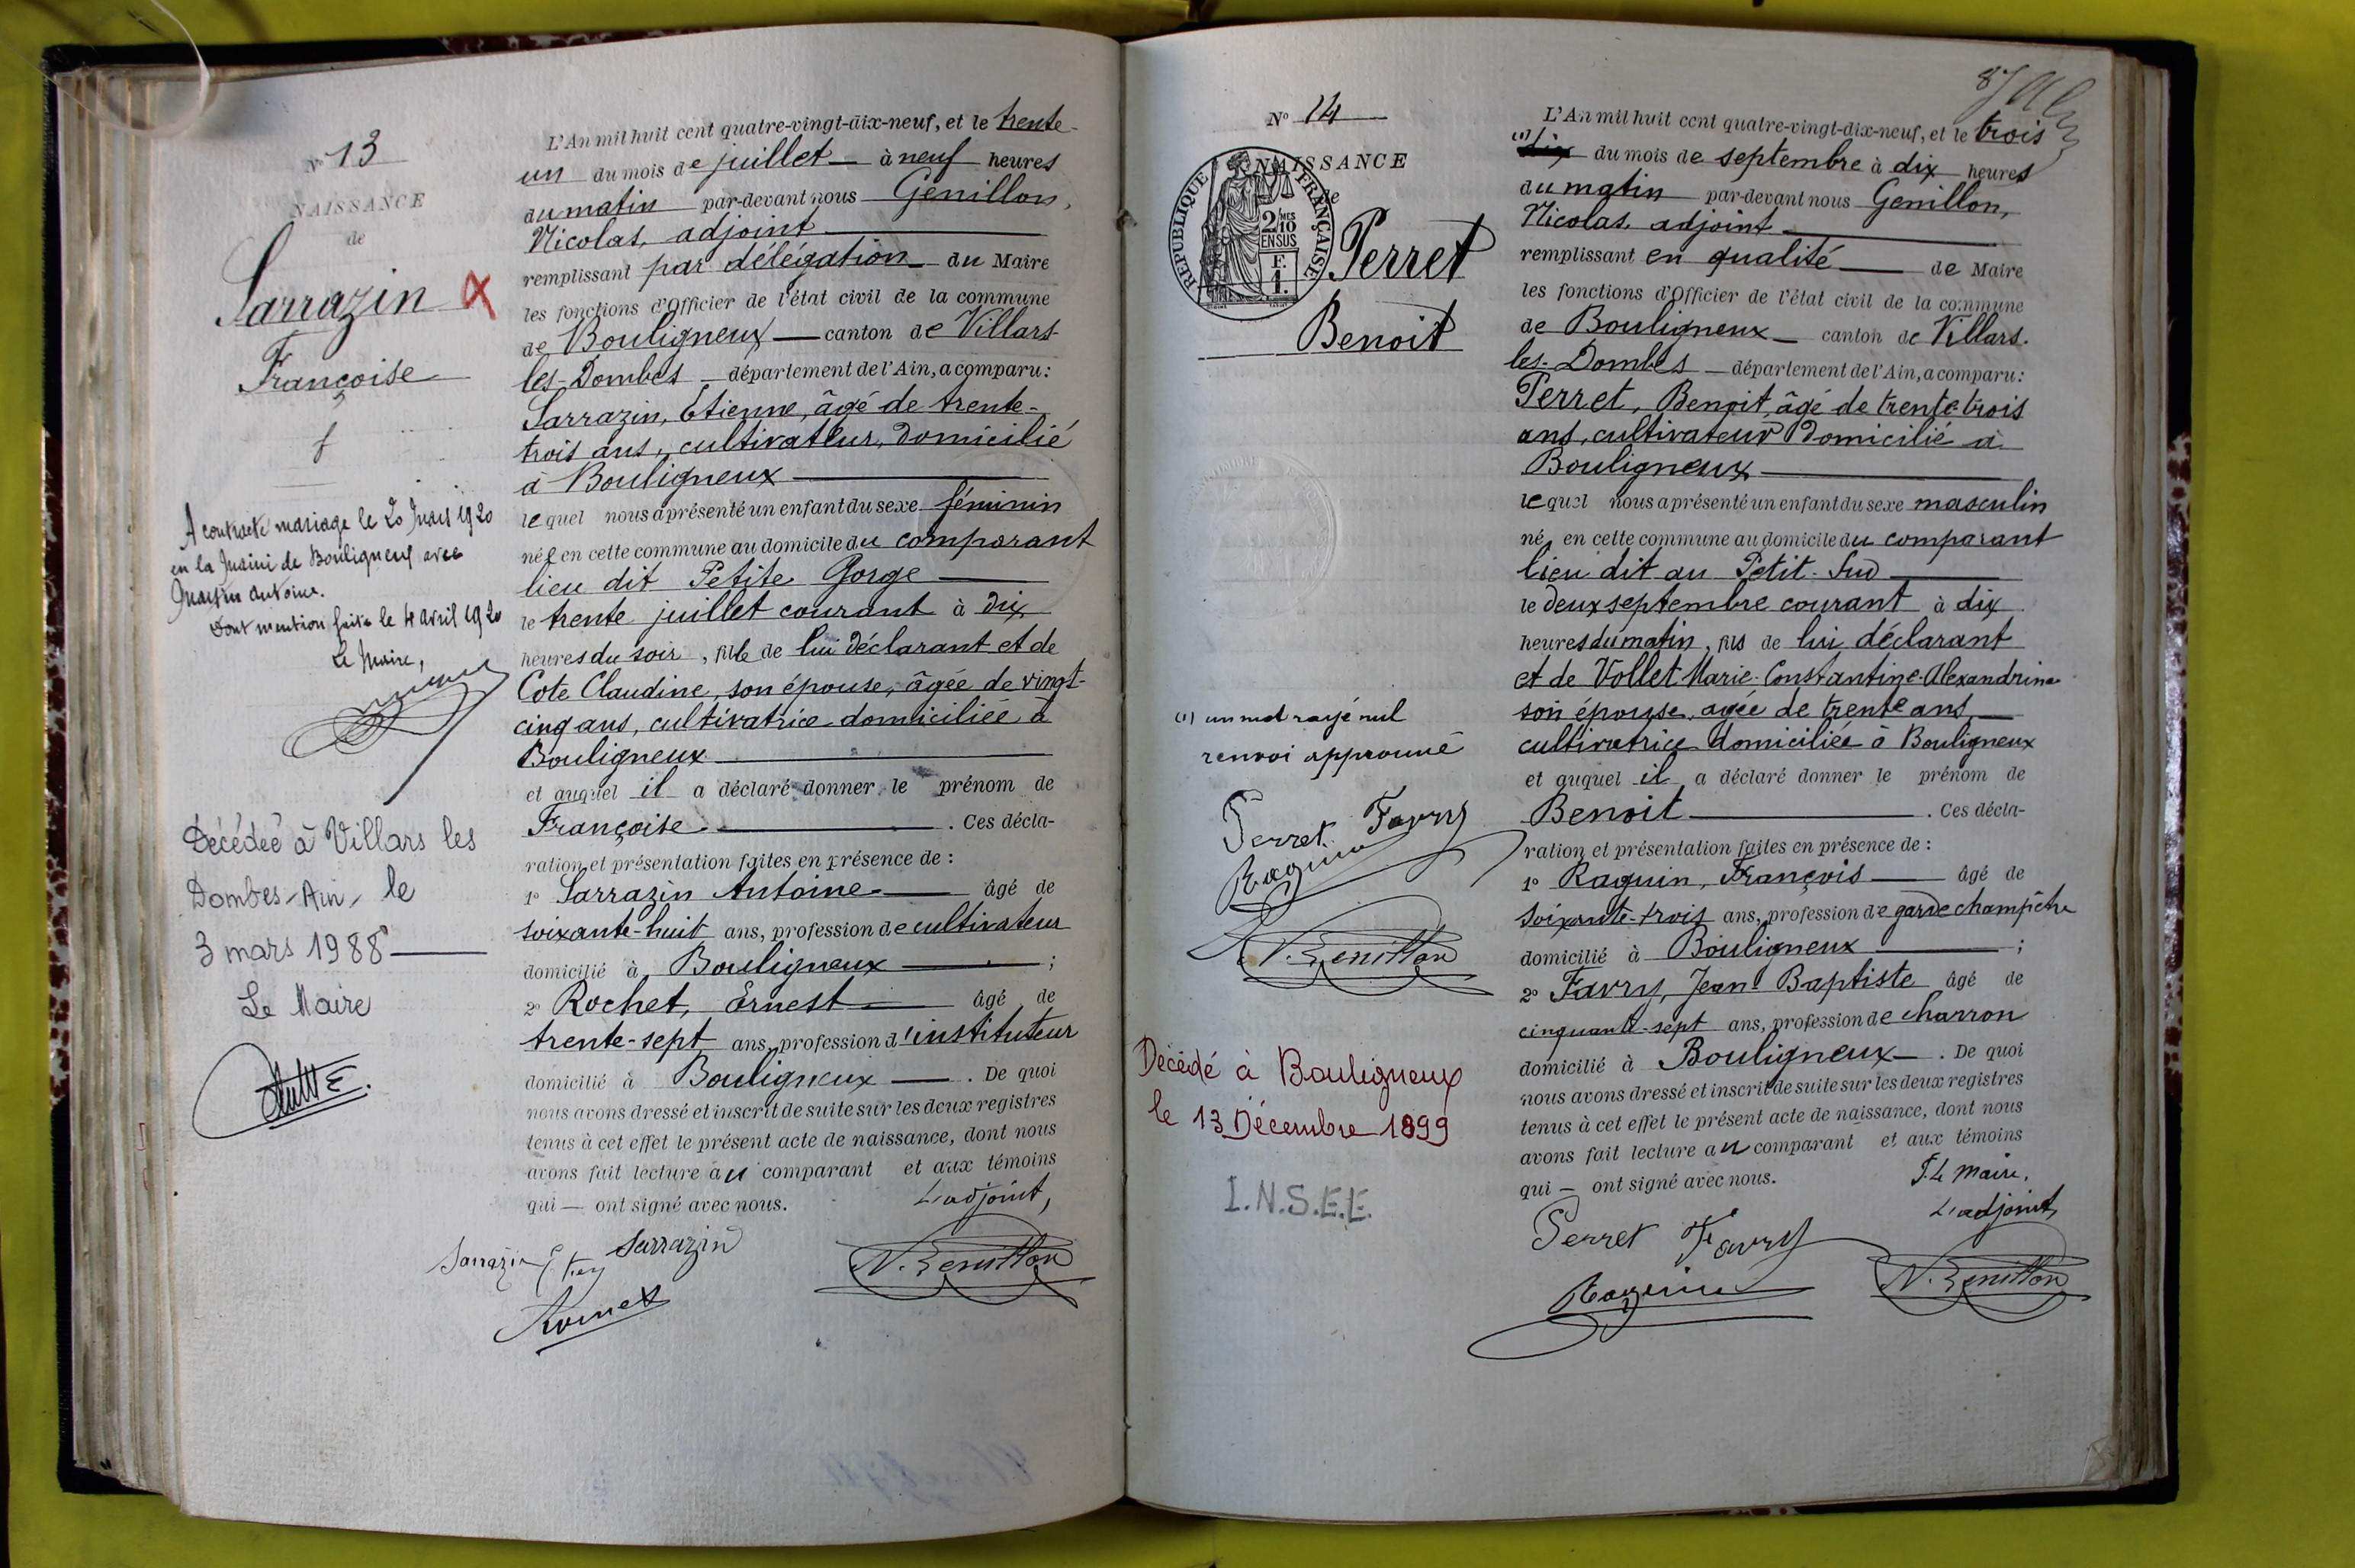 N° 13
NAISSANCE
de
Sarrazin
Françoise
A contracté mariage le 20 Mars 1920
en la Mairie de Bouligneux avec
Martin Antoine.
Dont mention faite le 4 avril 1920
Le Maire,
Décédée à Villars les
Dombes-Ain, le
3 mars 1988
Le Maire
L'An mil huit cent quatre-vingt-dix-neuf, et le trente-
un du mois de juillet à neuf heures
du matin par-devant nous Genillon,
Nicolas, adjoint
remplissant par délégation du Maire
les fonctions d'Officier de l'état civil de la commune
de Bouligneux canton de Villars-
les-Dombes département de l'Ain, a comparu:
Sarrazin, Etienne, âgé de trente-
trois ans, cultivateur, domicilié
à Bouligneux
lequel nous a présenté un enfant du sexe féminin
née en cette commune au domicile du comparant
lieu dit Petite Gorge
le trente juillet courant à dix
heures du soir, fille de lui déclarant et de
Cote Claudine, son épouse, âgée de vingt-
cinq ans, cultivatrice domiciliée à
Bouligneux
et auquel il a déclaré donner le prénom de
Françoise. Ces décla-
ration et présentation faites en présence de :
1° Sarrazin Antoine âgé de
soixante-huit ans, profession de cultivateur
domicilié à Bouligneux ;
2° Rochet, Ernest âgé de
trente-sept ans, profession d'instituteur
domicilié à Bouligneux. De quoi
nous avons dressé et inscrit de suite sur les deux registres
tenus à cet effet le présent acte de naissance, dont nous
avons fait lecture au comparant et aux témoins
qui — ont signé avec nous.
L'adjoint,
Sarrazin Sarrazin
N. Genillon
87
N° 14
NAISSANCE
de
RÉPUBLIQUE FRANÇAISE
2/10 MES
EN SUS
F.
1.
Perret
Benoit
(1) un mot rayé nul
renvoi approuvé
Perret Favry
Raquin
N. Genillon
Décédé à Bouligneux
le 13 Décembre 1899
I.N.S.E.E.
L'An mil huit cent quatre-vingt-dix-neuf, et le trois
(1) dix du mois de septembre à dix heures
du matin par-devant nous Genillon,
Nicolas, adjoint
remplissant en qualité de Maire
les fonctions d'Officier de l'état civil de la commune
de Bouligneux canton de Villars-
les-Dombes département de l'Ain, a comparu:
Perret, Benoit, âgé de trente-trois
ans, cultivateur domicilié à
Bouligneux
lequel nous a présenté un enfant du sexe masculin
né en cette commune au domicile du comparant
lieu dit au Petit-Sud
le deux septembre courant à dix
heures du matin, fils de lui déclarant
et de Vollet Marie-Constantine-Alexandrine
son épouse, agée de trente ans
cultivatrice domiciliée à Bouligneux
et auquel il a déclaré donner le prénom de
Benoit. Ces décla-
ration et présentation faites en présence de :
1° Raquin, François âgé de
soixante-trois ans, profession de garde champêtre
domicilié à Bouligneux ;
2° Favry, Jean-Baptiste âgé de
cinquante-sept ans, profession de charron
domicilié à Bouligneux. De quoi
nous avons dressé et inscrit de suite sur les deux registres
tenus à cet effet le présent acte de naissance, dont nous
avons fait lecture au comparant et aux témoins
qui — ont signé avec nous.
P. Le Maire,
L'adjoint,
Perret Favry
Raquin
N. Genillon